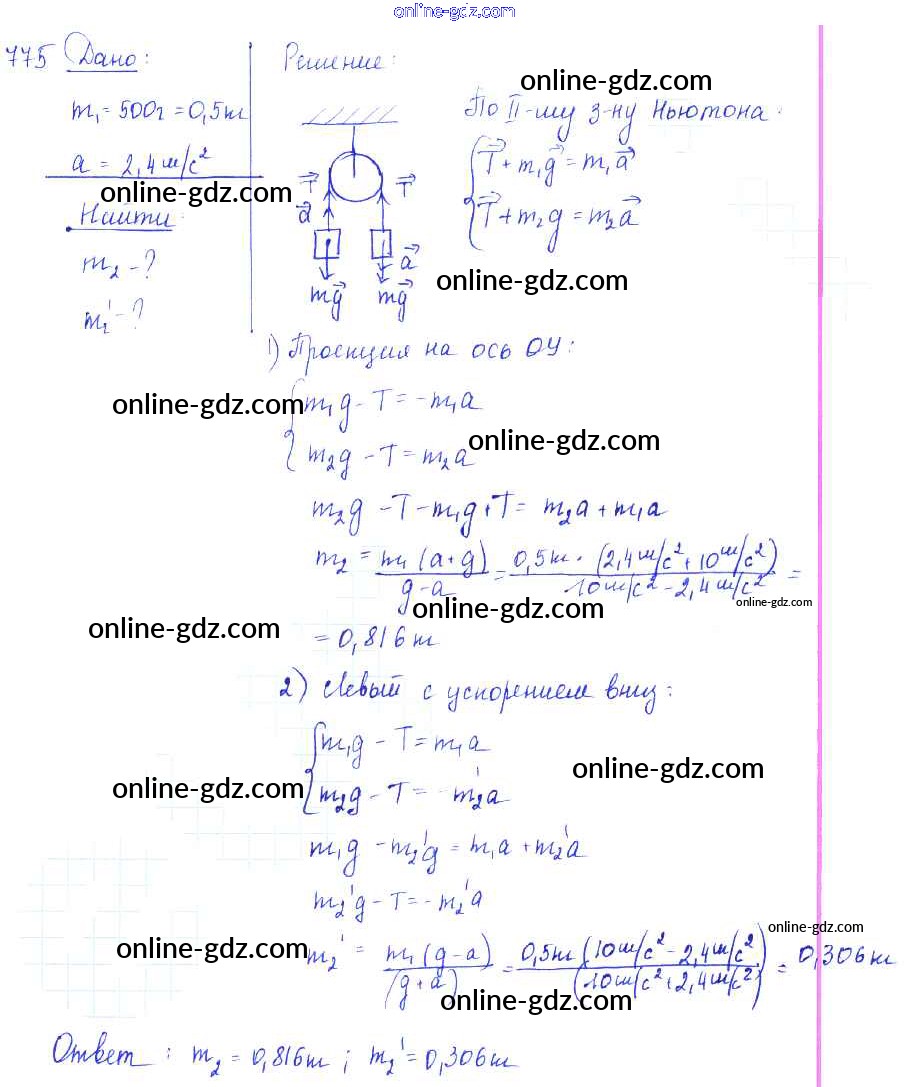 online-gdz.com
775 Дано:
m₁ = 500г = 0,5кг
a = 2,4 м/с²
online-gdz.com
Найти:
m₂ - ?
m₂' - ?
Решение:
online-gdz.com
T⃗ T⃗
a⃗
a⃗
mg⃗ mg⃗
По II-му з-ну Ньютона:
T⃗ + m₁g⃗ = m₁a⃗
T⃗ + m₂g = m₂a⃗
online-gdz.com
1) Проекция на ось ОУ:
online-gdz.com
m₁g - T = -m₁a
online-gdz.com
m₂g - T = m₂a
m₂g - T - m₁g + T = m₂a + m₁a
m₂ = m₁(a+g)/g-a = 0,5кг · (2,4м/с² + 10м/с²)/10м/с² - 2,4м/с² =
online-gdz.com
online-gdz.com
online-gdz.com
= 0,816 кг
2) Левый с ускорением вниз:
m₁g - T = m₁a
online-gdz.com
online-gdz.com
m₂g - T = - m₂'a
m₁g - m₂'g = m₁a + m₂'a
m₂'g - T = - m₂'a
online-gdz.com
online-gdz.com
m₂' = m₁(g-a)/(g+a) = 0,5кг(10м/с² - 2,4м/с²)/(10м/с² + 2,4м/с²) = 0,306кг
online-gdz.com
Ответ: m₂ = 0,816кг; m₂' = 0,306кг